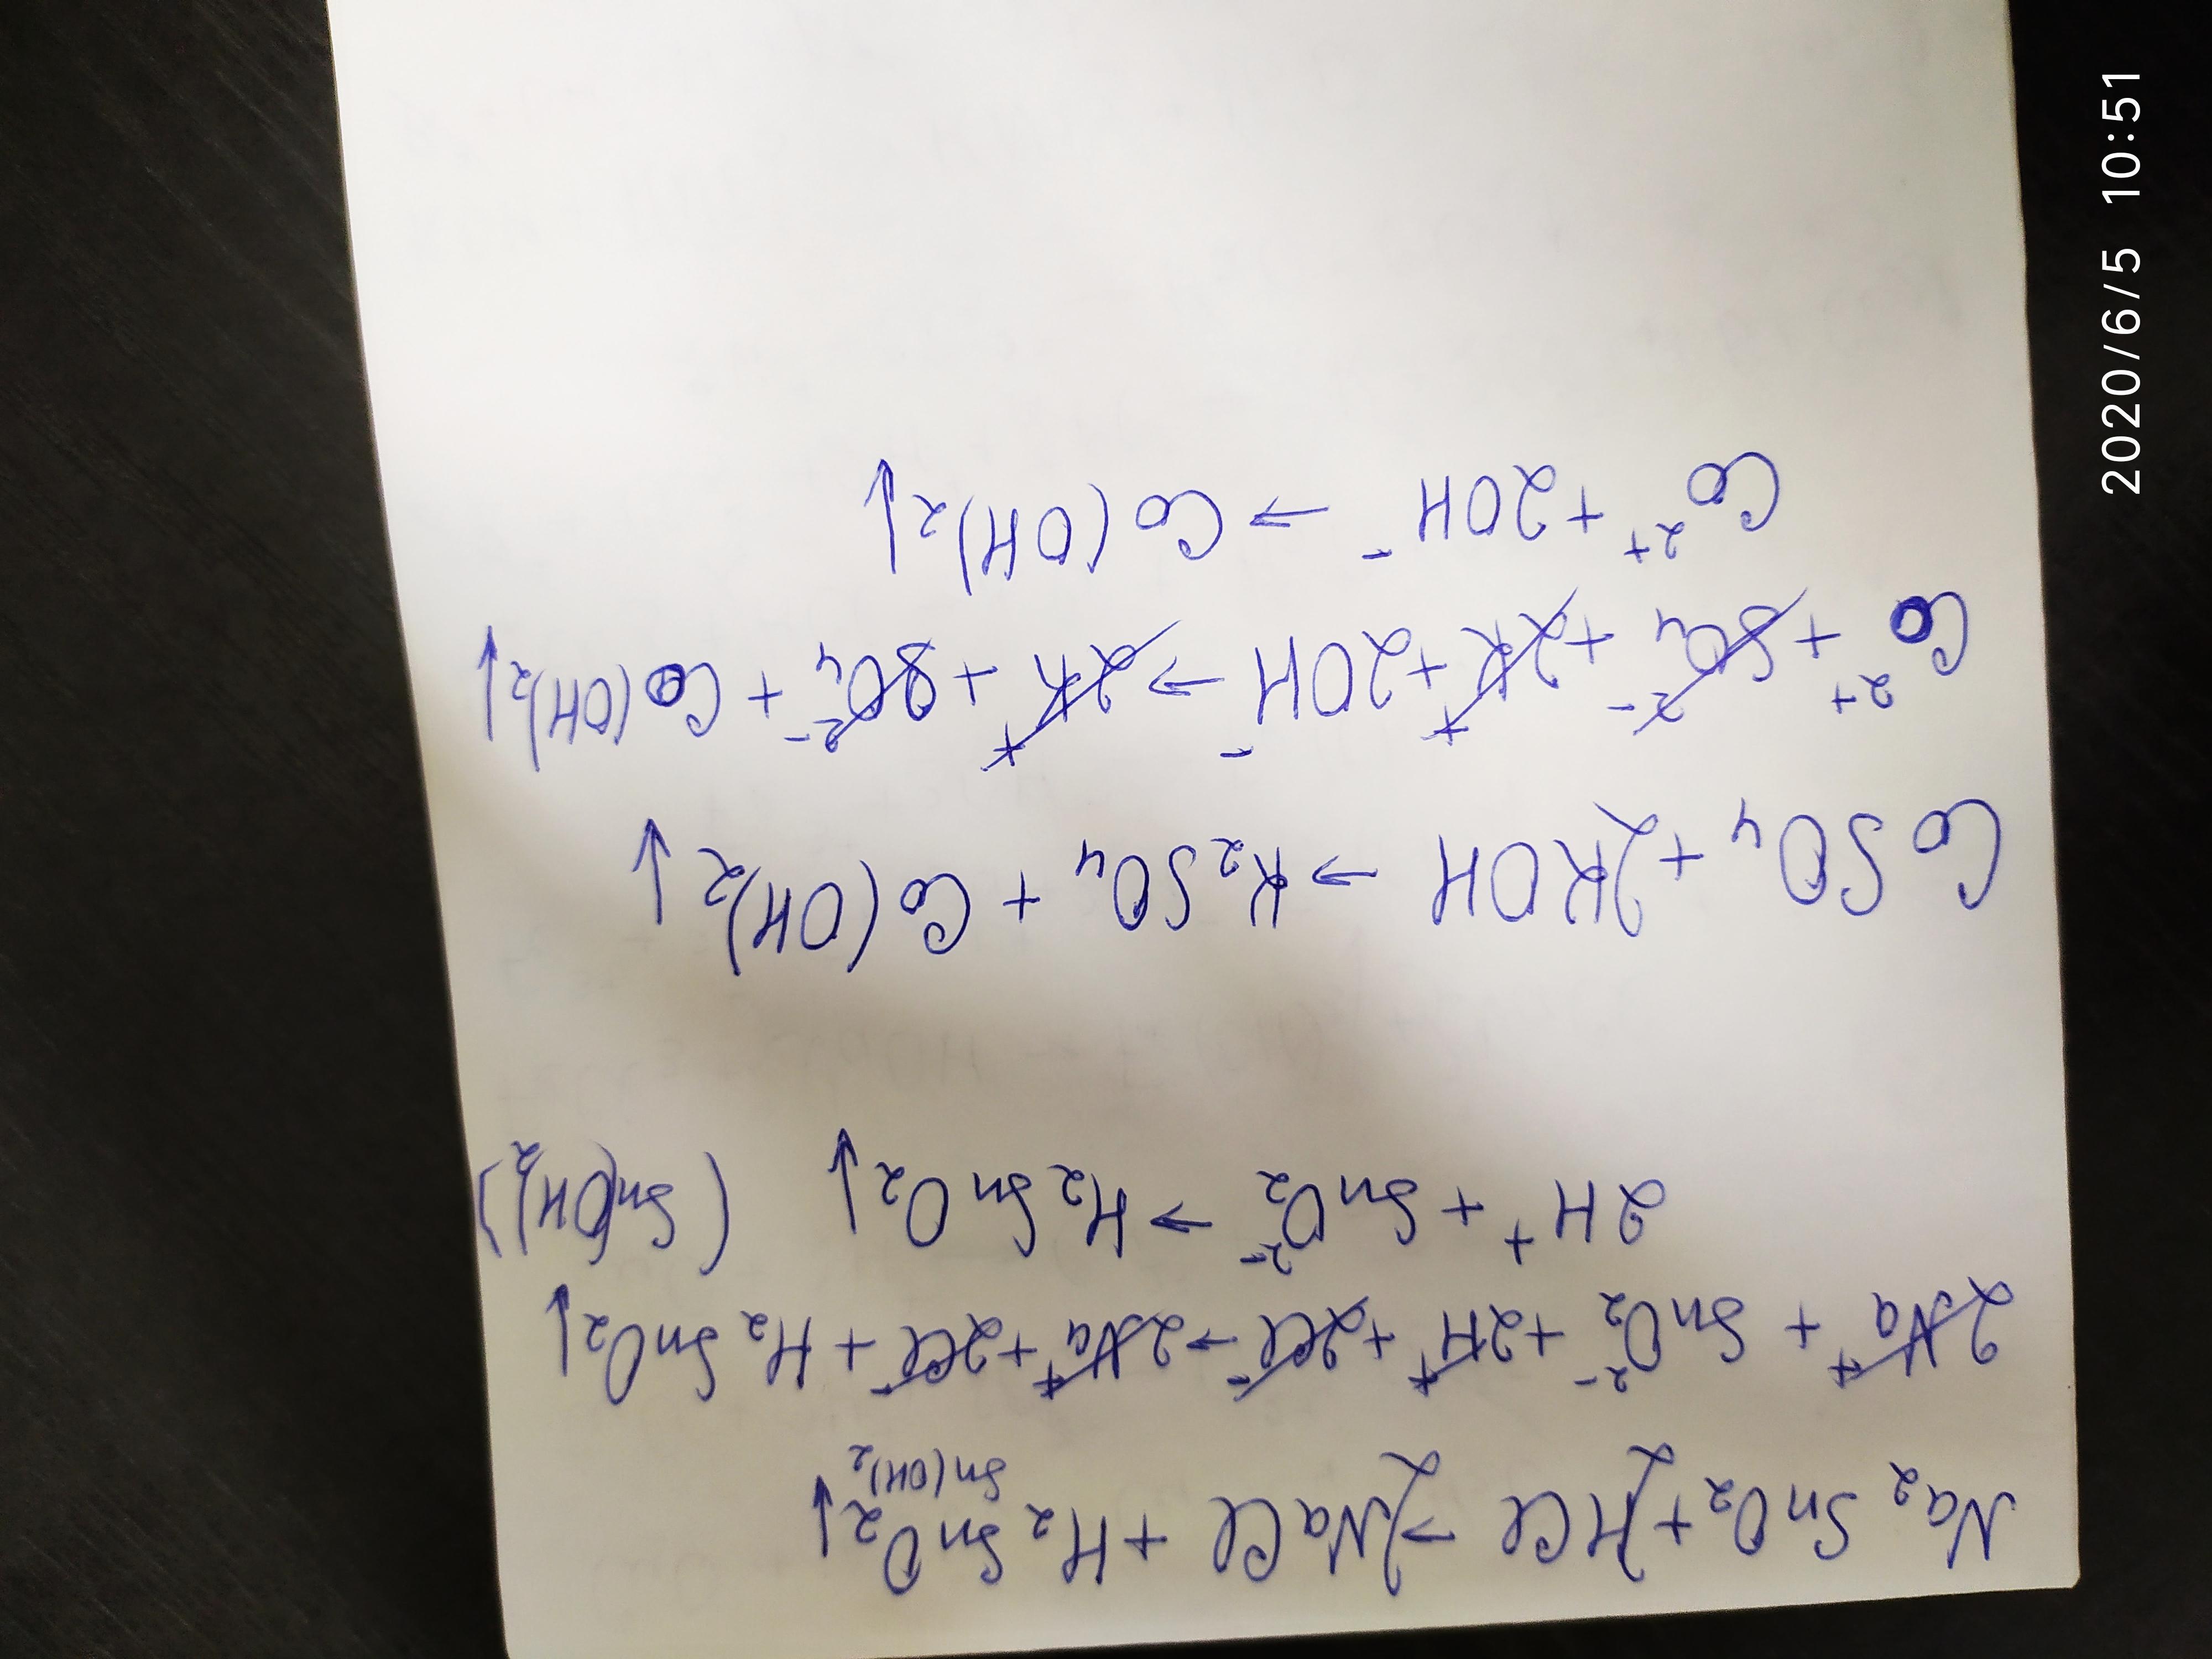 Na₂SnO₂ + 2HCl → 2NaCl + H₂SnO₂↓
Sn(OH)₂
2Na⁺ + SnO₂²⁻ + 2H⁺ + 2Cl⁻ → 2Na⁺ + 2Cl⁻ + H₂SnO₂↓
2H⁺ + SnO₂²⁻ → H₂SnO₂↓ (Sn(OH)₂)
CoSO₄ + 2KOH → K₂SO₄ + Co(OH)₂↓
Co²⁺ + SO₄²⁻ + 2K⁺ + 2OH⁻ → 2K⁺ + SO₄²⁻ + Co(OH)₂↓
Co²⁺ + 2OH⁻ → Co(OH)₂↓
2020/6/5 10:51